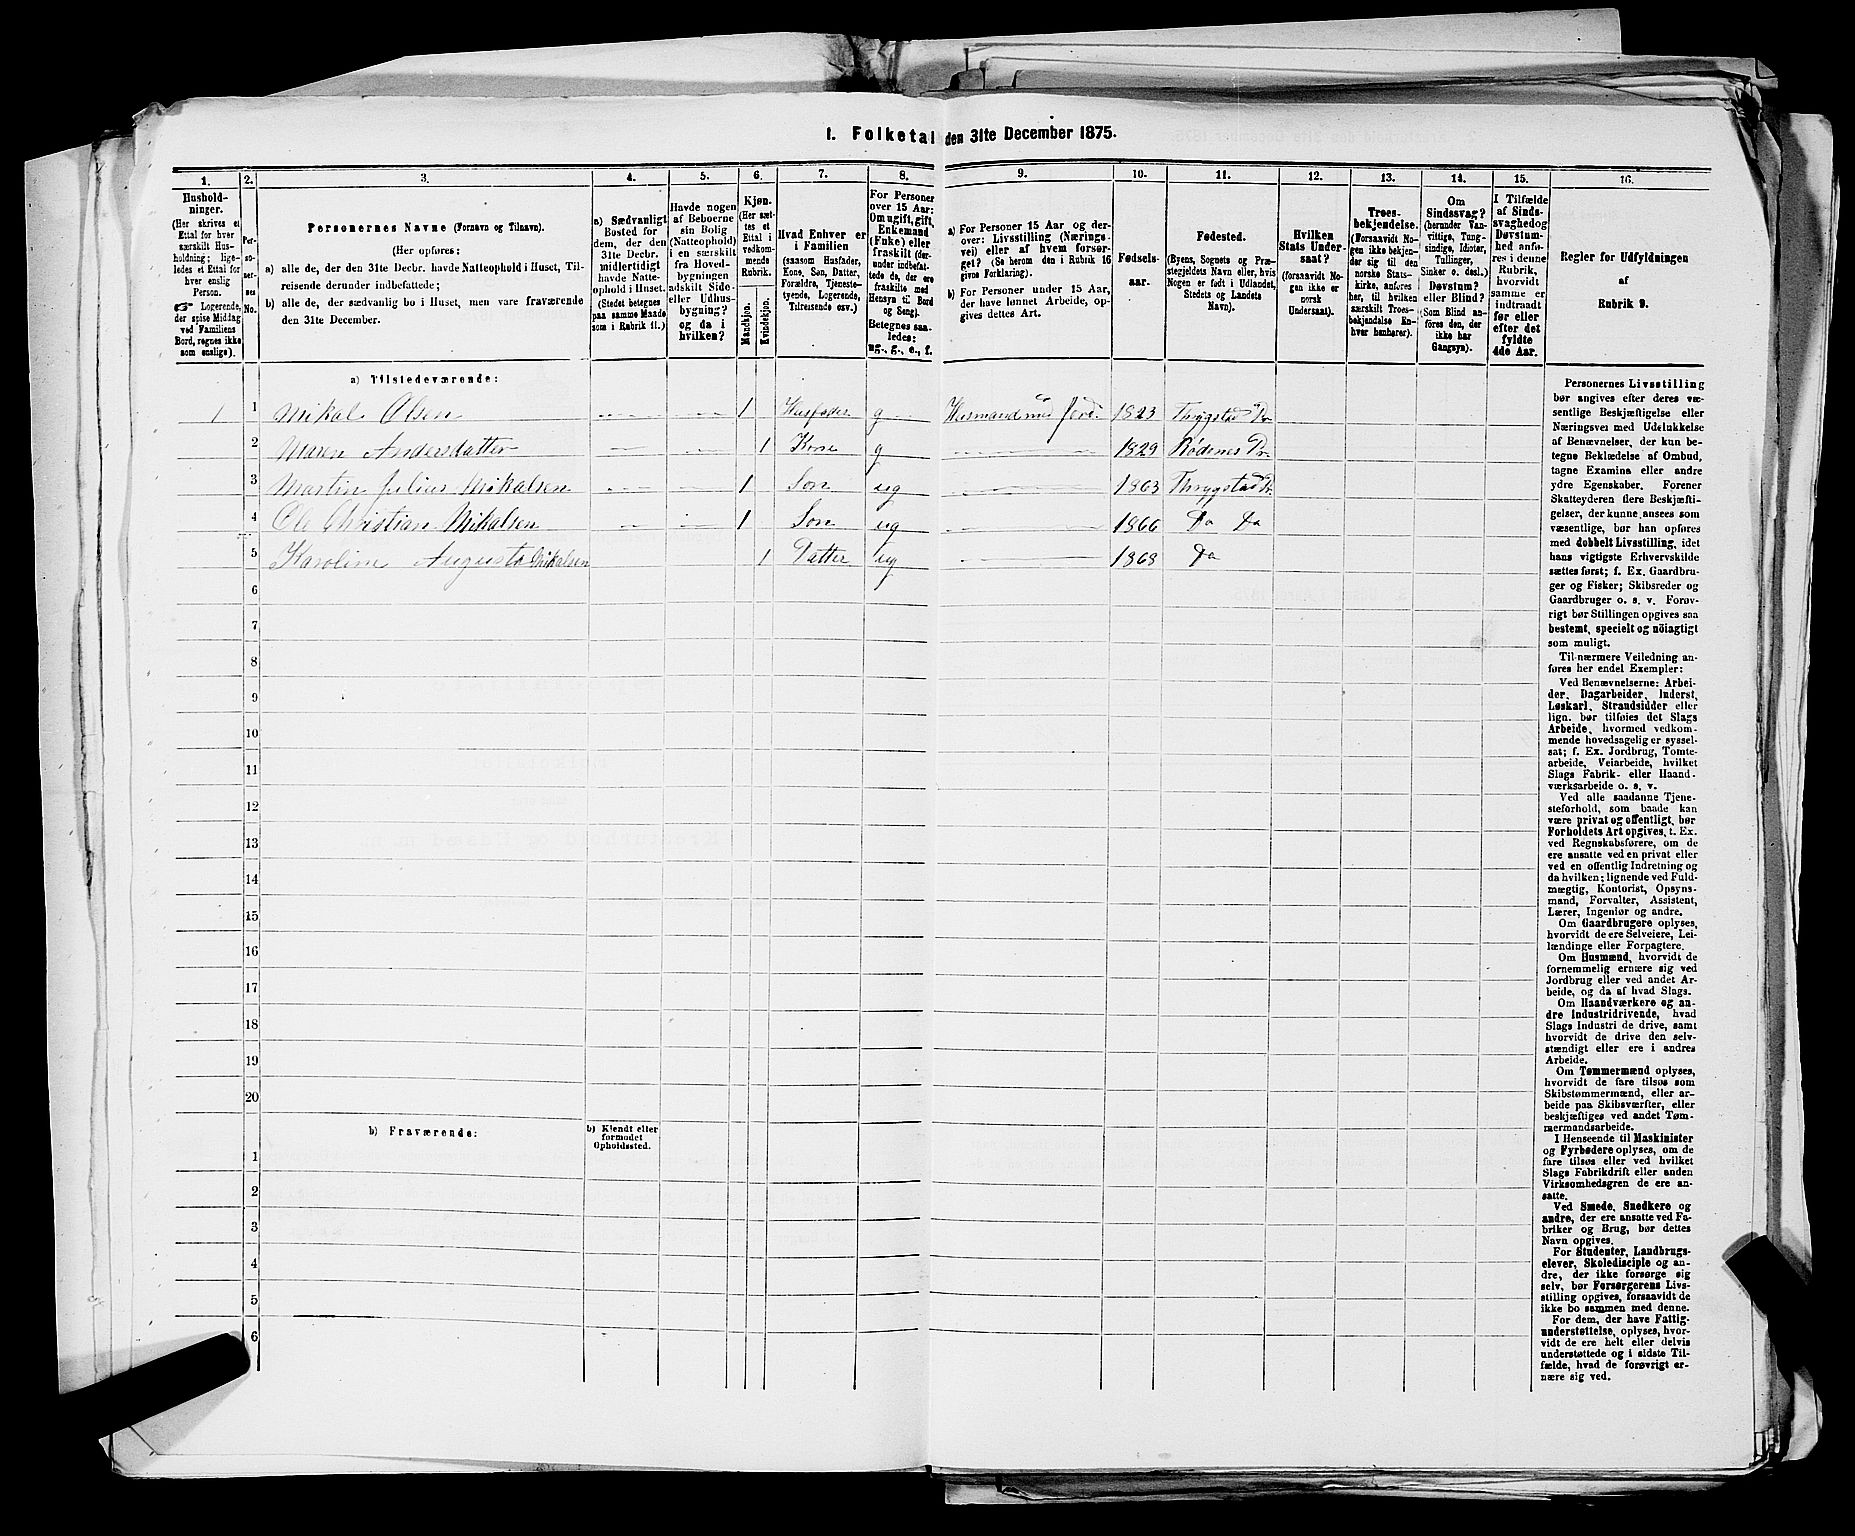 1. Folketal den 31te December 1875.
1.
Hushold-
ninger.
(Her skrives et
Ettal for hver
særskilt Hus-
holdning; lige-
ledes et Ettal for
hver enslig
Person.
Logerende,
der spise Middag
ved Familiens
Bord, regnes ikke
som enslige).
2.
Per-
so-
ner-
nes
No.
3.
Personernes Navne (Fornavn og Tilnavn).
(Her opføres:
a) alle de, der den 31te Decbr. havde Natteophold i Huset, Til-
reisende derunder indbefattede;
b) alle de, der sædvanlig bo i Huset, men vare fraværende
den 31te December.
4.
a) Sædvanligt
Bosted for
dem, der den
31te Decbr.
midlertidigt
havde Natte-
ophold i Huset.
(Stedet betegnes
paa samme Maade
som i Rubrik 11.)
5.
Havde nogen
af Beboerne
sin Bolig
(Natteophold)
i en særskilt
fra Hoved-
bygningen
adskilt Side-
eller Udhus-
bygning?
og da i
hvilken?
6.
Kjøn.
(Her sæt-
tes et
Ettal i
vedkom-
mende
Rubrik.
Mandkjøn.
Kvindekjøn.
7.
Hvad Enhver er
i Familien
(saasom Husfader,
Kone, Søn, Datter,
Forældre, Tjeneste-
tyende, Logerende,
Tilreisende osv.)
8.
For Personer
over 15 Aar:
Om ugift, gift,
Enkemand
(Enke) eller
fraskilt (der-
under indbefat-
tede de, der ere
fraskilte med
Hensyn til Bord
og Seng).
Betegnes saa-
ledes:
ug., g., e., f.
9.
a) For Personer 15 Aar og der-
over: Livsstilling (Nærings-
vei) eller af hvem forsør-
get? (Se herom den i Rubrik 16
givne Forklaring).
b) For Personer under 15 Aar,
der have lønnet Arbeide, op-
gives dettes Art.
10.
Fødsels-
aar.
11.
Fødested.
(Byens, Sognets og Præ-
stegjeldets Navn eller, hvis
Nogen er født i Udlandet,
Stedets og Landets
Navn).
12.
Hvilken
Stats Under-
saat?
(forsaavidt No-
gen ikke er
norsk
Undersaat).
13.
Troes-
bekjendelse.
(Forsaavidt No-
gen ikke bekjen-
der sig til den
norske Stats-
kirke, anføres
her, til hvilken
særskilt Troes-
bekjendelse En-
hver henhører).
14.
Om
Sindssvag?
(herunder Van-
vittige, Tung-
sindige, Idioter,
Tullinger,
Sinker o. desl.)
Døvstum?
eller Blind?
(Som Blind an-
føres den, der
ikke har
Gangsyn).
15.
I Tilfælde
af Sinds-
svaghed og
Døvstum-
hed anfø-
res i denne
Rubrik,
hvorvidt
samme er
indtraadt
før eller
efter det
fyldte
4de Aar.
16.
Regler for Udfyldningen
af
Rubrik 9.
a) Tilstedeværende:
1 1 Mikal Olsen 1 Husfader g Husmand 1823 Thrygstad Pr
2 Maren Andersdatter 1 Kone g 1829 Rødenes Pr
3 Martin Julius Mikalsen 1 Søn ug 1863 Thrygstad Pr
4 Ole Christian Mikalsen 1 Søn ug 1866 Do Do
5 Karoline Augusta Mikalsen 1 Datter ug 1868 Do
6
7
8
9
10
11
12
13
14
15
16
17
18
19
20
b) Fraværende:
b) Kjendt eller
formodet
Opholdssted.
1
2
3
4
5
6
Personernes Livsstilling
bør angives efter deres væ-
sentlige Beskjæftigelse eller
Næringsvei med Udelukkelse
af Benævnelser, der kun be-
tegne Beklædelse af Ombud,
tagne Examina eller andre
ydre Egenskaber. Forener
Skatteyderen flere Beskjæfti-
gelser, der kunne ansees som
væsentlige, bør han opføres
med dobbelt Livsstilling, idet
hans vigtigste Erhvervskilde
sættes først; f. Ex. Gaardbru-
ger og Fisker; Skibsreder og
Gaardbruger o. s. v. Forøv-
rigt bør Stillingen opgives saa
bestemt, specielt og nöiagtigt
som muligt.
Til nærmere Veiledning an-
føres her endel Exempler:
Ved Benævnelserne: Arbei-
der, Dagarbeider, Inderst,
Løskarl, Strandsidder eller
lign. bør tilføies det Slags
Arbeide, hvormed vedkom-
mende hovedsagelig er syssel-
sat; f. Ex. Jordbrug, Tomte-
arbeide, Veiarbeide, hvilket
Slags Fabrik- eller Haand-
værksarbeide o. s. v.
Ved alle saadanne Tjene-
steforhold, som baade kan
være privat og offentligt, bør
Forholdets Art opgives, t. Ex.
ved Regnskabsførere, om de
ere ansatte ved en privat eller
ved en offentlig Indretning og
da hvilken; lignende ved Fuld-
mægtig, Kontorist, Opsyns-
mand, Forvalter, Assistent,
Lærer, Ingeniør og andre.
Om Gaardbrugere oplyses,
hvorvidt de ere Selveiere, Lei-
lændinge eller Forpagtere.
Om Husmænd, hvorvidt de
fornemmelig ernære sig ved
Jordbrug eller ved andet Ar-
beide, og da af hvad Slags.
Om Haandværkere og an-
dre Industridrivende, hvad
Slags Industri de drive, samt
hvorvidt de drive den selv-
stændigt eller ere i andres
Arbeide.
Om Tømmermænd oplyses,
hvorvidt de fare tilsøs som
Skibstømmermænd, eller ar-
beide paa Skibsværfter, eller
beskjæftiges ved andet Tøm-
mermandsarbeide.
I Henseende til Maskinister
og Fyrbødere oplyses, om de
fare tilsøs eller ved hvilket
Slags Fabrikdrift eller anden
Virksomhedsgren de ere an-
satte.
Ved Smede, Snedkere og
andre, der ere ansatte ved Fa-
briker og Brug, bør dettes
Navn opgives.
For Studenter, Landbrugs-
elever, Skoledisciple og an-
dre, der ikke forsørge sig
selv, bør Forsørgerens Livs-
stilling opgives, forsaavidt de
ikke bo sammen med denne.
For dem, der have Fattig-
understøttelse, oplyses, hvor-
vidt de ere helt eller delvis
understøttede og i sidste Til-
fælde, hvad de forøvrigt er-
nære sig ved.